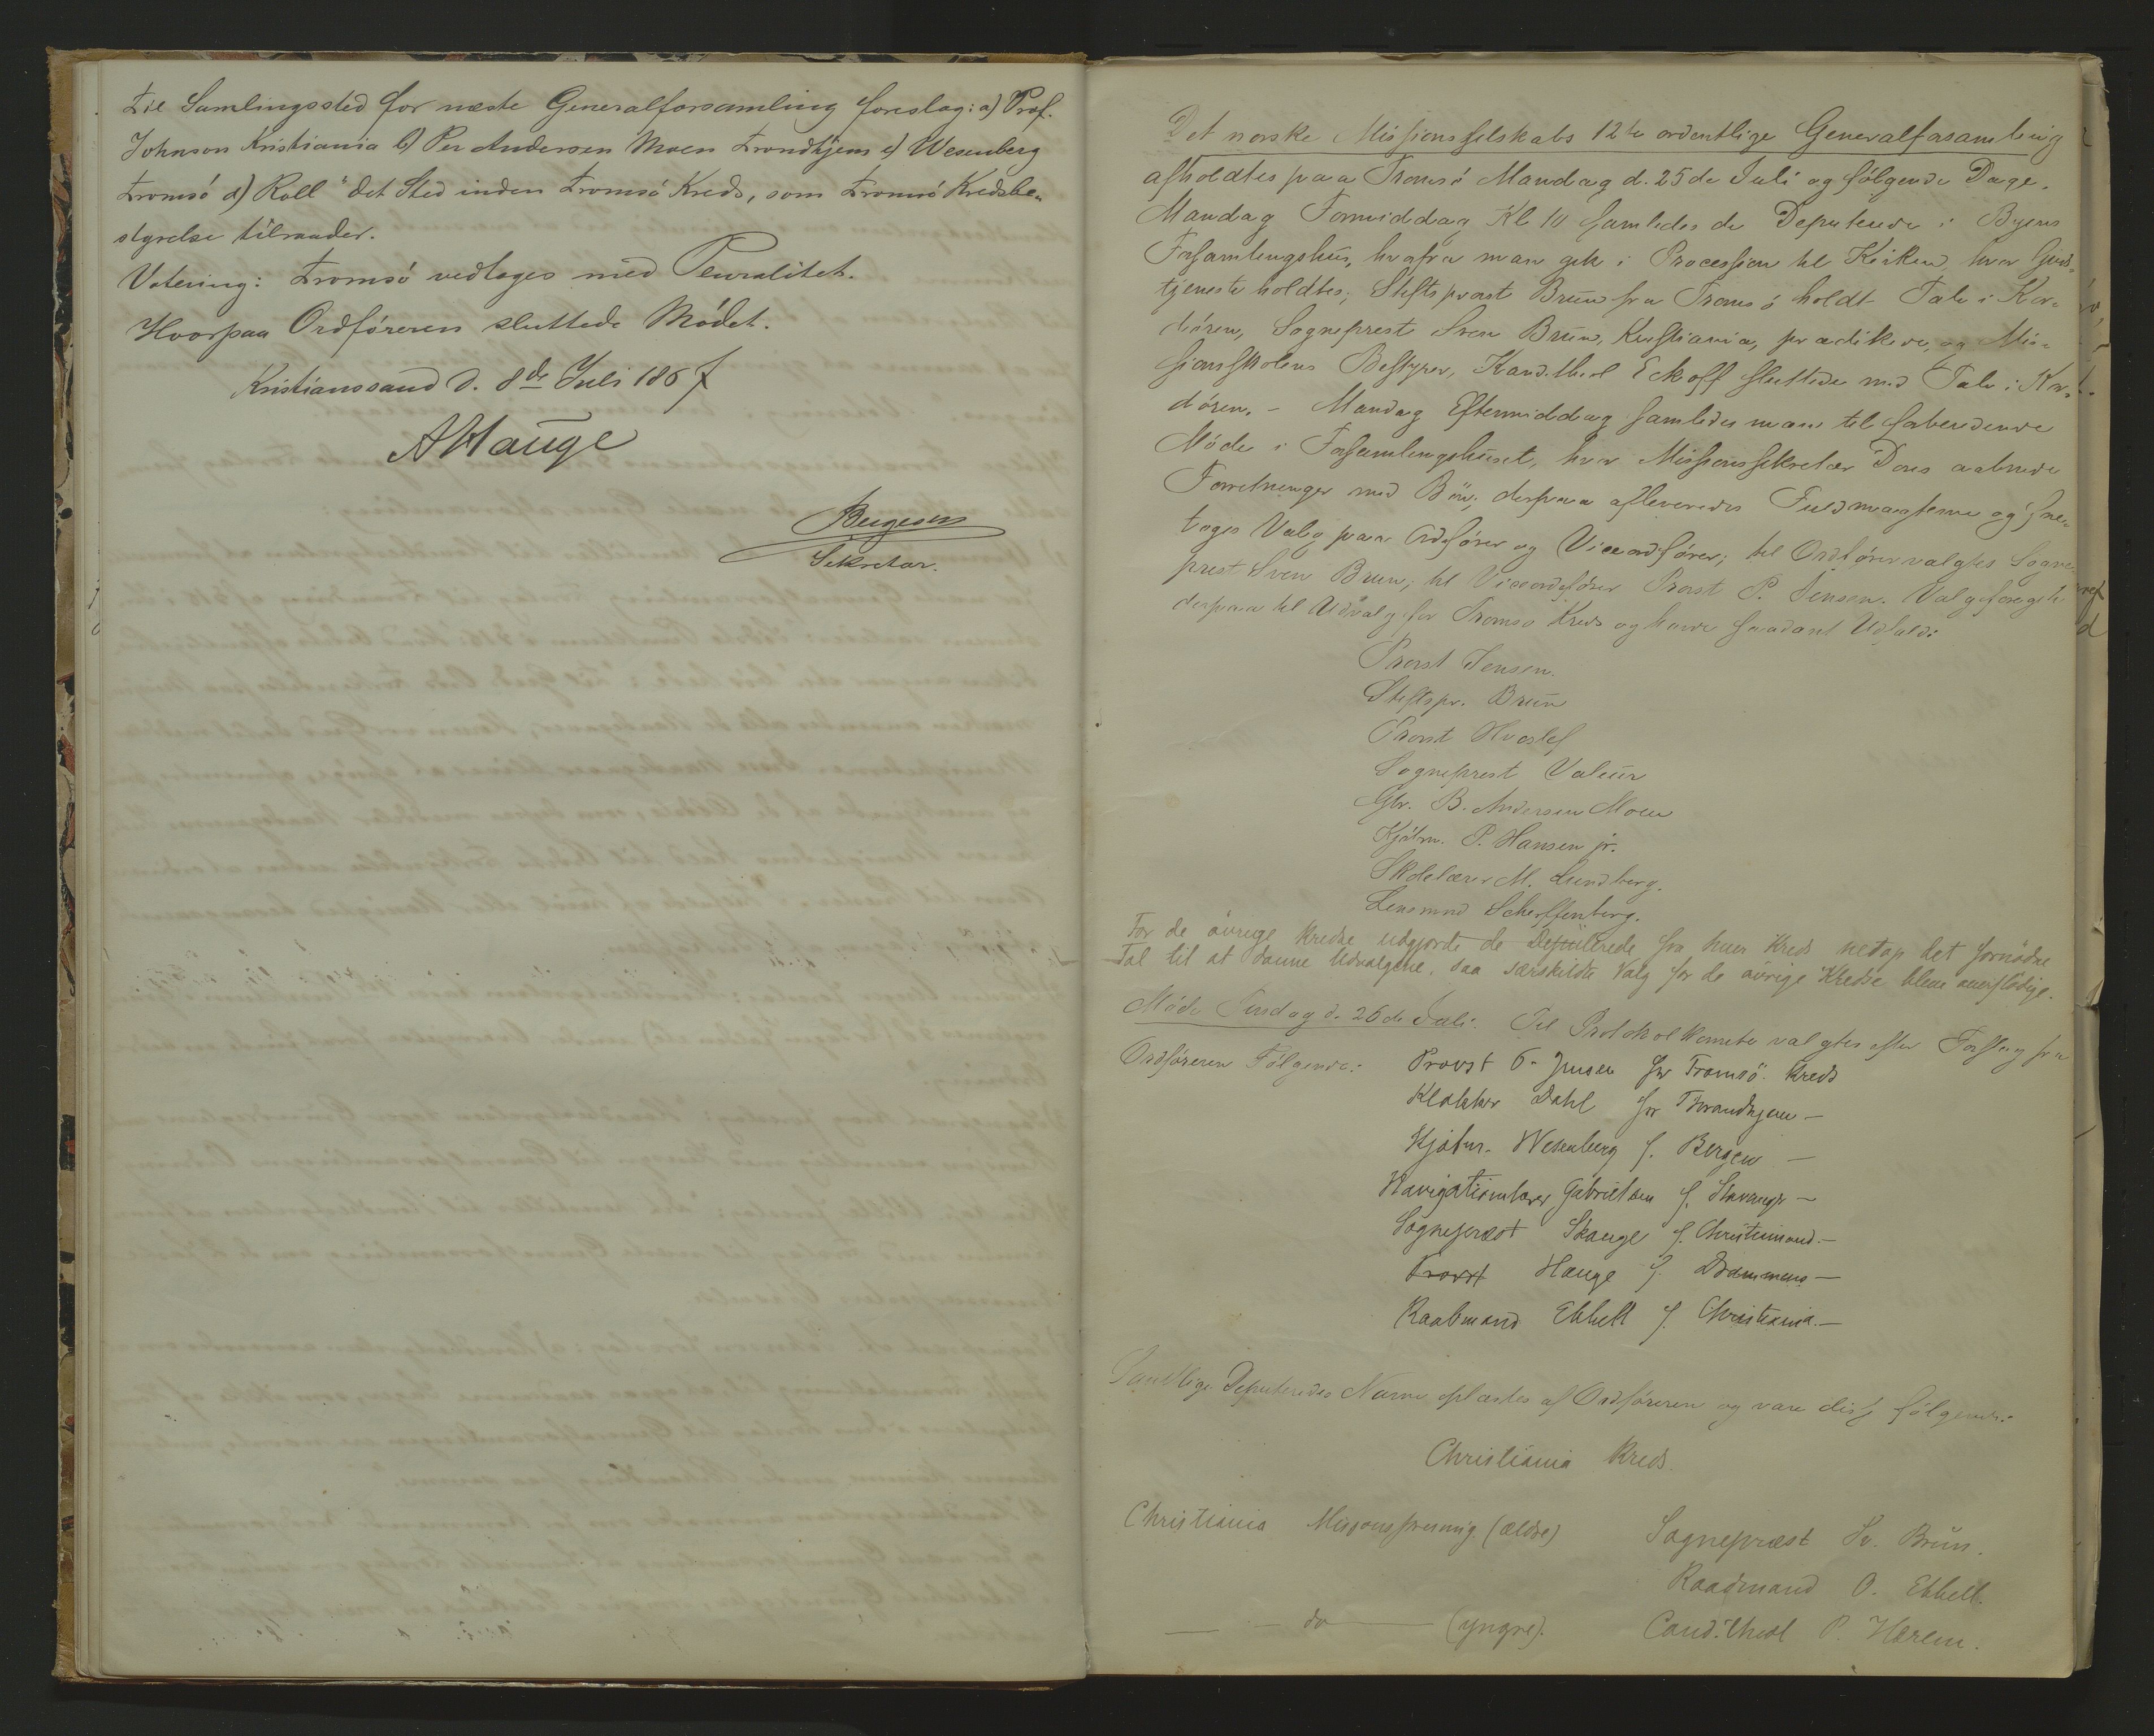 Til Samlingssted for næste Generalforsamling foreslog: a) Prof.
Johnson Kristiania b) Per Andersen Moen Trondhjem c) Wesenberg
Tromsö d) Roll "det Sted inden Tromsö Kreds, som Tromsö Kredsbe-
styrelse tilraader.
Votering: Tromsö vedtoges med Pluralitet.
Hvorpaa Ordföreren sluttede Mödet.
Kristianssand d. 8de Juli 1867
AHauge
Bergesen
Sekretær.
Det norske Missionsselskabs 12te ordentlige Generalforsamling
afholdtes paa Tromsö Mandag d. 25de Juli og fölgende Dage.
Mandag Formiddag Kl 10 samledes de Deputerede i Byens
Forsamlingshus, hvorfra man gik i Procession til Kirken, hvor Guds-
tjeneste holdtes; Stiftsprovst Brun fra Tromsö holdt Tale i Kor-
dören, Sogneprest Sven Brun, Kristiania, prædikede, og Mis-
sionsskolens Bestyrer, Kand. theol Eckoff sluttede med Tale i Kor-
dören. - Mandag Eftermiddag samledes man til forberedende
Möde i Forsamlingshuset, hvor Missionssekretær Dons aabnede
Forretninger med Bön; derpaa afleveredes Fuldmagterne og fore-
toges Valg paa Ordförer og Viceordförer; til Ordförer valgtes Sogne-
prest Sven Brun, til Viceordförer Provst P. Jensen. Valg foregik
derpaa til Udvalg for Tromsö Kreds og havde saadant Udfald:
Provst Jensen.
Stiftspr. Brun
Provst Hvoslef
Sogneprest Valeur
Gbr. B. Andersen Moen
Kjöbm. P. Hansen jr.
Skolelærer M. Lundberg.
Lensmand Scheffenberg.
For de övrige Kredse udgjorde de Deputerede fra hver Kreds netop det fornödne
Tal til at danne Udvalgene, saa særskildte Valg for de övrige Kredse bleve overflödige.
Möde Tirsdag d. 26de Juli. Til Protokolkomite valgtes efter Forslag fra
Ordföreren Fölgende: Provst Jensen for Tromsö Kreds
Klokker Dahl for Throndhjem —
Kjöbm. Wesenberg f. Bergen —
Navigationslærer Gabrielsen f. Stavanger —
Sogneprest Skauge f. Christiansand. —
Provst Hauge f. Drammens —
Raadmand Ebbell f. Christiania. —
Samtlige Deputeredes Navne oplæstes af Ordföreren og vare disse fölgende:
Christiania Kreds.
Christiania Missionsforening (ældre) Sognepræst Sv. Brun.
Raadmand O. Ebbell.
— - do — (yngre). Cand. theol P. Hærem.